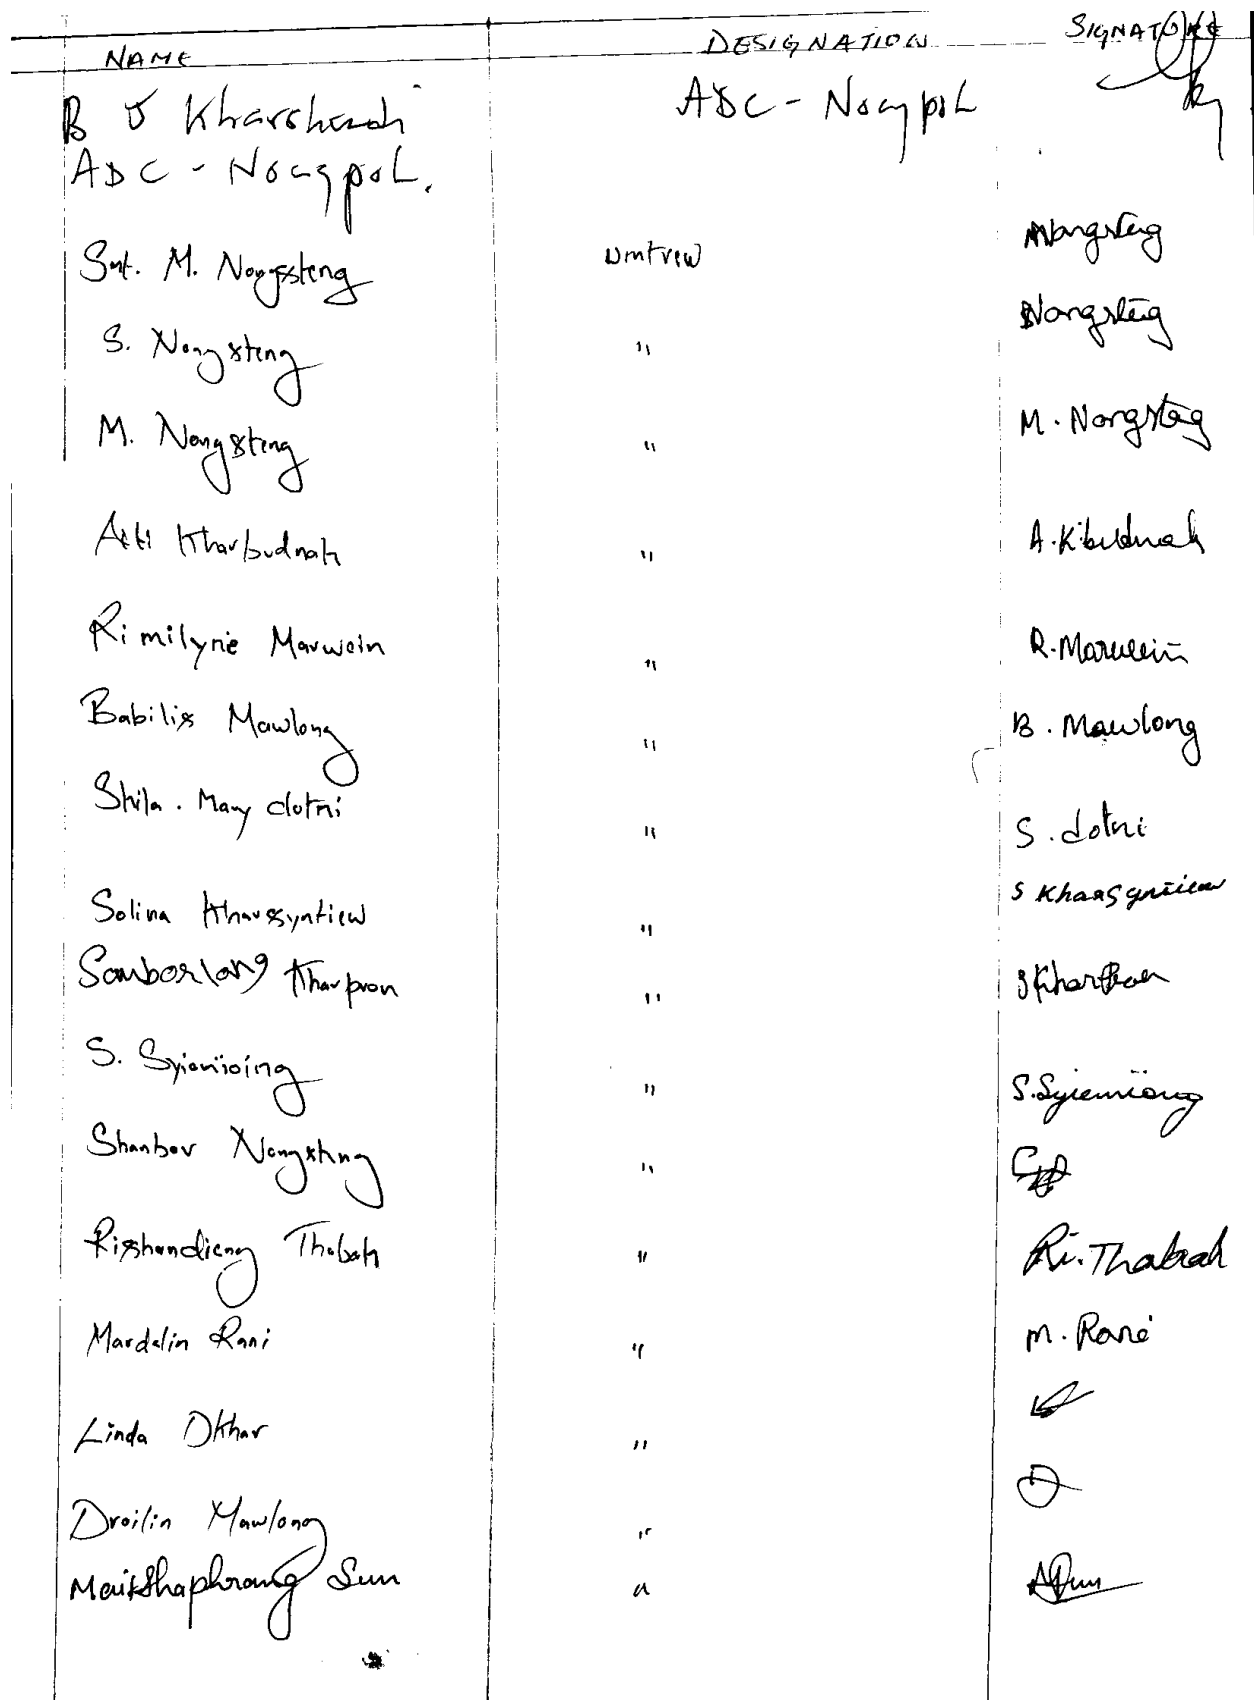 NAME DESIGNATION SIGNATURE
B J Kharshandi ADC - Nongpoh
ADC - Nongpoh.
Smt. M. Nongsteng Umtrew Nongsteng
S. Nongsteng " SNongsteng
M. Nongsteng " M. Nongsteng
Kharbudnah " A.
Rimilynie Marwein " R. Marwein
Babilis Mawlong " B. Mawlong
Shila. Mary dotni " S. dotni
Solina Kharsyntiew " S Kharsyntiew
Samborlang Kharpran "
S. Syiemiong " S. Syiemiong
Shanbor Nongsteng "
Rishandieng Thabah " Ri. Thabah
Mardalin Rani " M. Rani
Linda Dkhar "
Droilin Mawlong "
Maitshaphrang Sun "